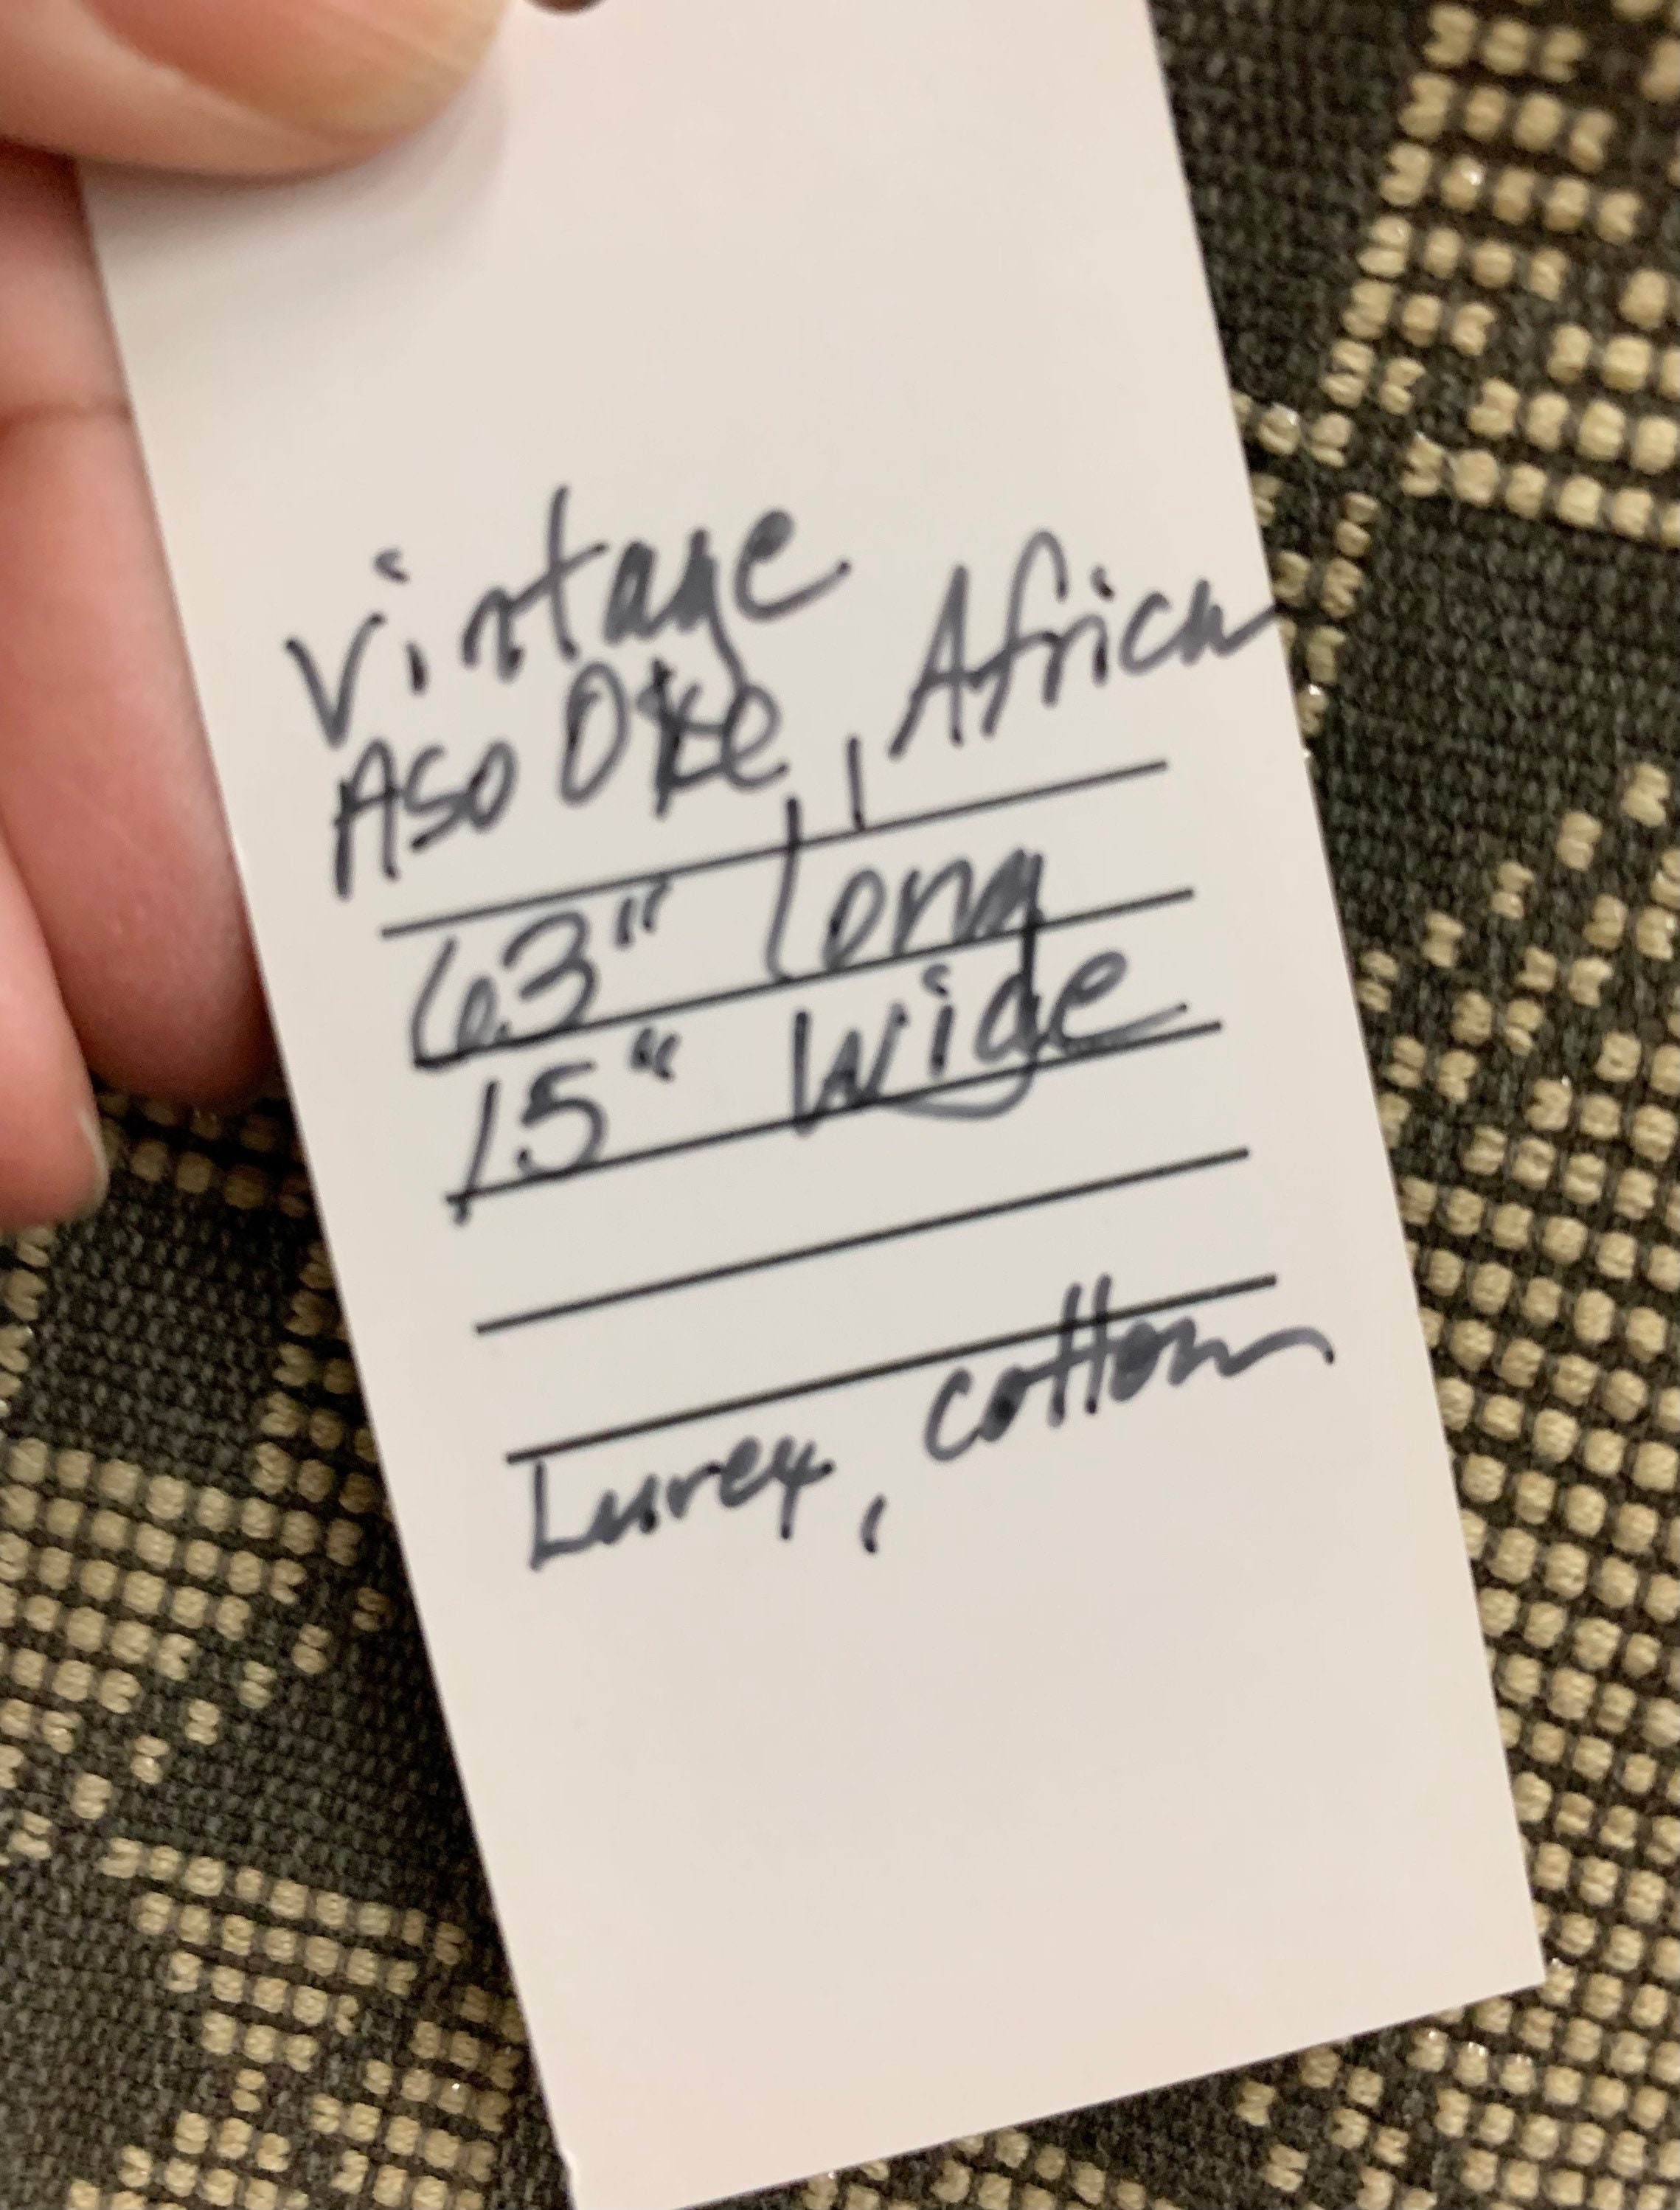 Vintage
Aso Oke, Africa
63" long
15" wide
Lurex, cotton